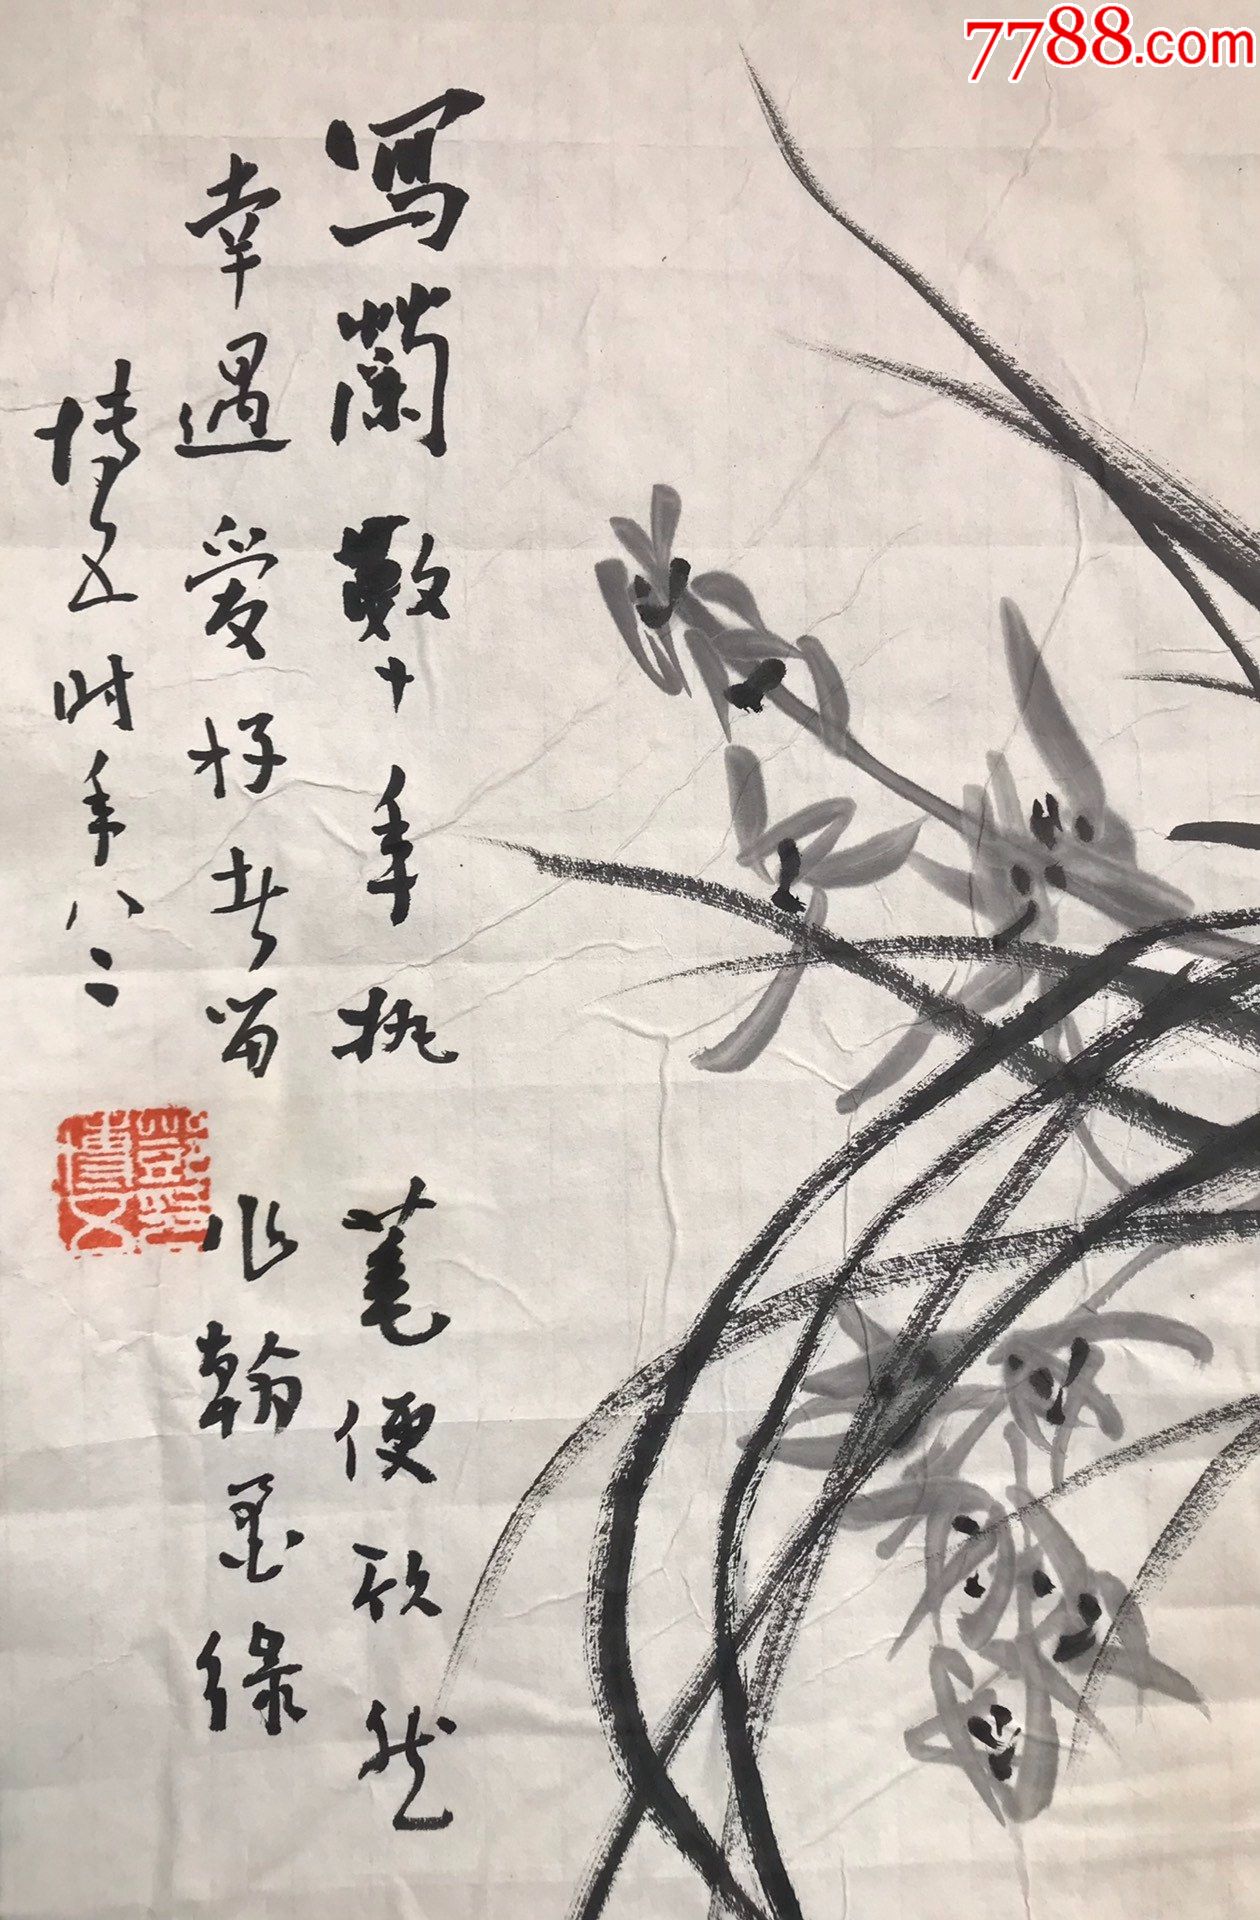 7788.com
寫蘭數十年执筆便欣然
幸遇愛好者留作翰墨緣
博五时年八二